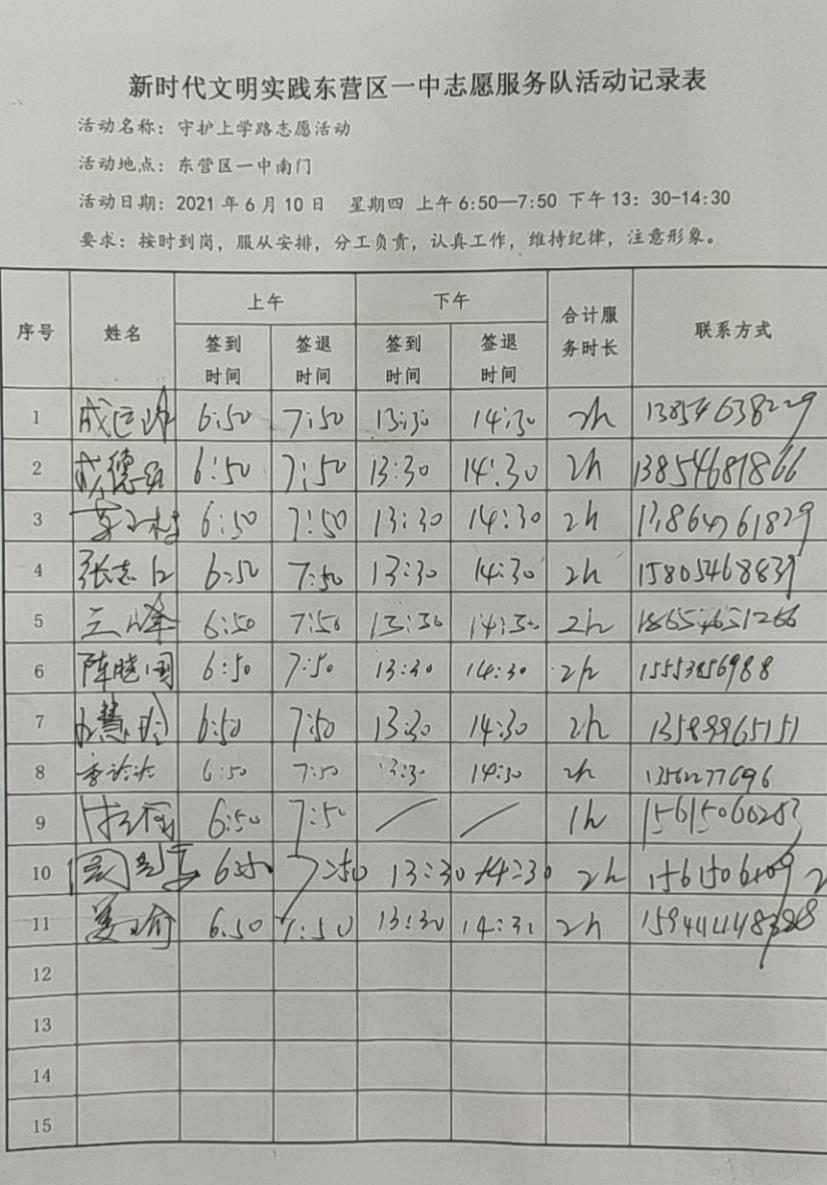 新时代文明实践东营区一中志愿服务队活动记录表
活动名称：守护上学路志愿活动
活动地点：东营区一中南门
活动日期：2021年6月10日 星期四 上午6:50—7:50 下午13：30-14:30
要求：按时到岗，服从安排，分工负责，认真工作，维持纪律，注意形象。
序号 姓名 上午 下午 合计服务时长 联系方式
签到时间 签退时间 签到时间 签退时间
1 6:50 7:50 13:30 14:30 2h 13854638229
2 6:50 7:50 13:30 14:30 2h 13854681866
3 6:50 7:50 13:30 14:30 2h
4 张志 6:50 7:50 13:30 14:30 2h 15805468839
5 6:50 7:50 13:30 14:30 2h 18654651266
6 陈晓国 6:50 7:50 13:30 14:30 2h
7 慧玲 6:50 7:50 13:30 14:30 2h 13589965151
8 6:50 7:50 13:30 14:30 2h 13562277696
9 6:50 7:50 / / 1h 15615060283
10 6:50 7:50 13:30 14:30 2h
11 姜瑜 6:50 7:50 13:30 14:31 2h
12
13
14
15